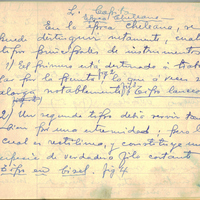 L. Capita
Epoca Chelleana
En la época chelleana, se
puede distinguir netamente, cual
tipos principales de instrumentos
1) El primero está destinado á trab
jar por la punta, lo que á veces s
alarga notablemente, Tipo lanceo
2) Un segundo tipo debió servir tam
bien por una extremidad; pero l
cual es rectilinea, y constituye un
especie de verdadero filo cortante
Tipo en bisel. fig 4